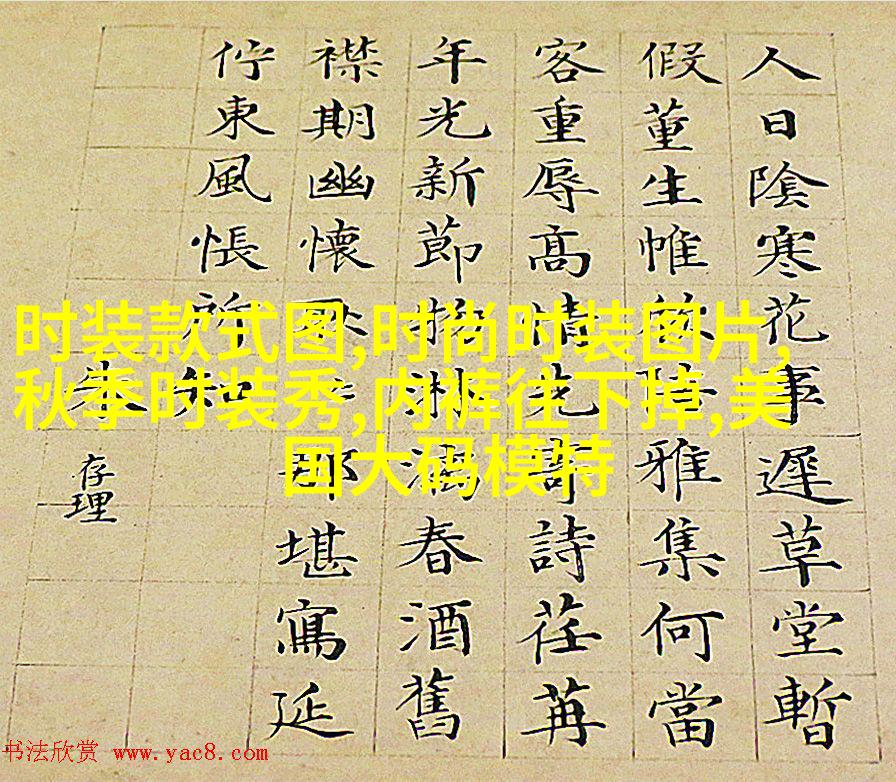 人日陰寒花事遲草堂暫
假董生帷雅集何當
客重辱高情先寄詩荏苒
年光新節換淋漓春酒舊
襟期幽懷那堪寫延
佇東風悵所知
朱存理
时装款式图,时尚时装图片,
秋季时装秀,内裤往下掉,美
国大码模特
书法欣赏 www.yac8.com